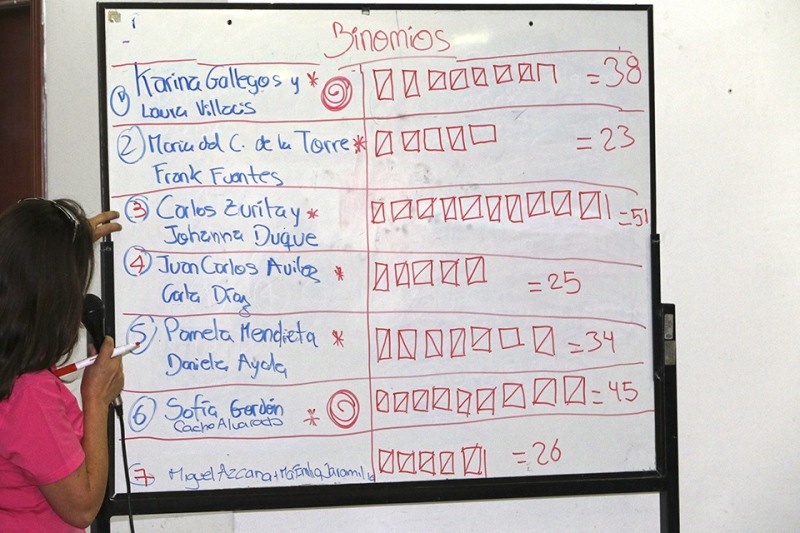 Binomios
1 Karina Gallegos y * = 38
Laura Villacis
2 Maria del C. de la Torre * = 23
Frank Fuentes
3 Carlos Zurita y * = 51
Johanna Duque
4 Juan Carlos Aviles * = 25
Carla Díaz
5 Pamela Mendieta * = 34
Daniela Ayala
6 Sofía Gordón * = 45
Cacho Alvarado
7 Miguel Azcana + Ma Emilia Jaramillo = 26